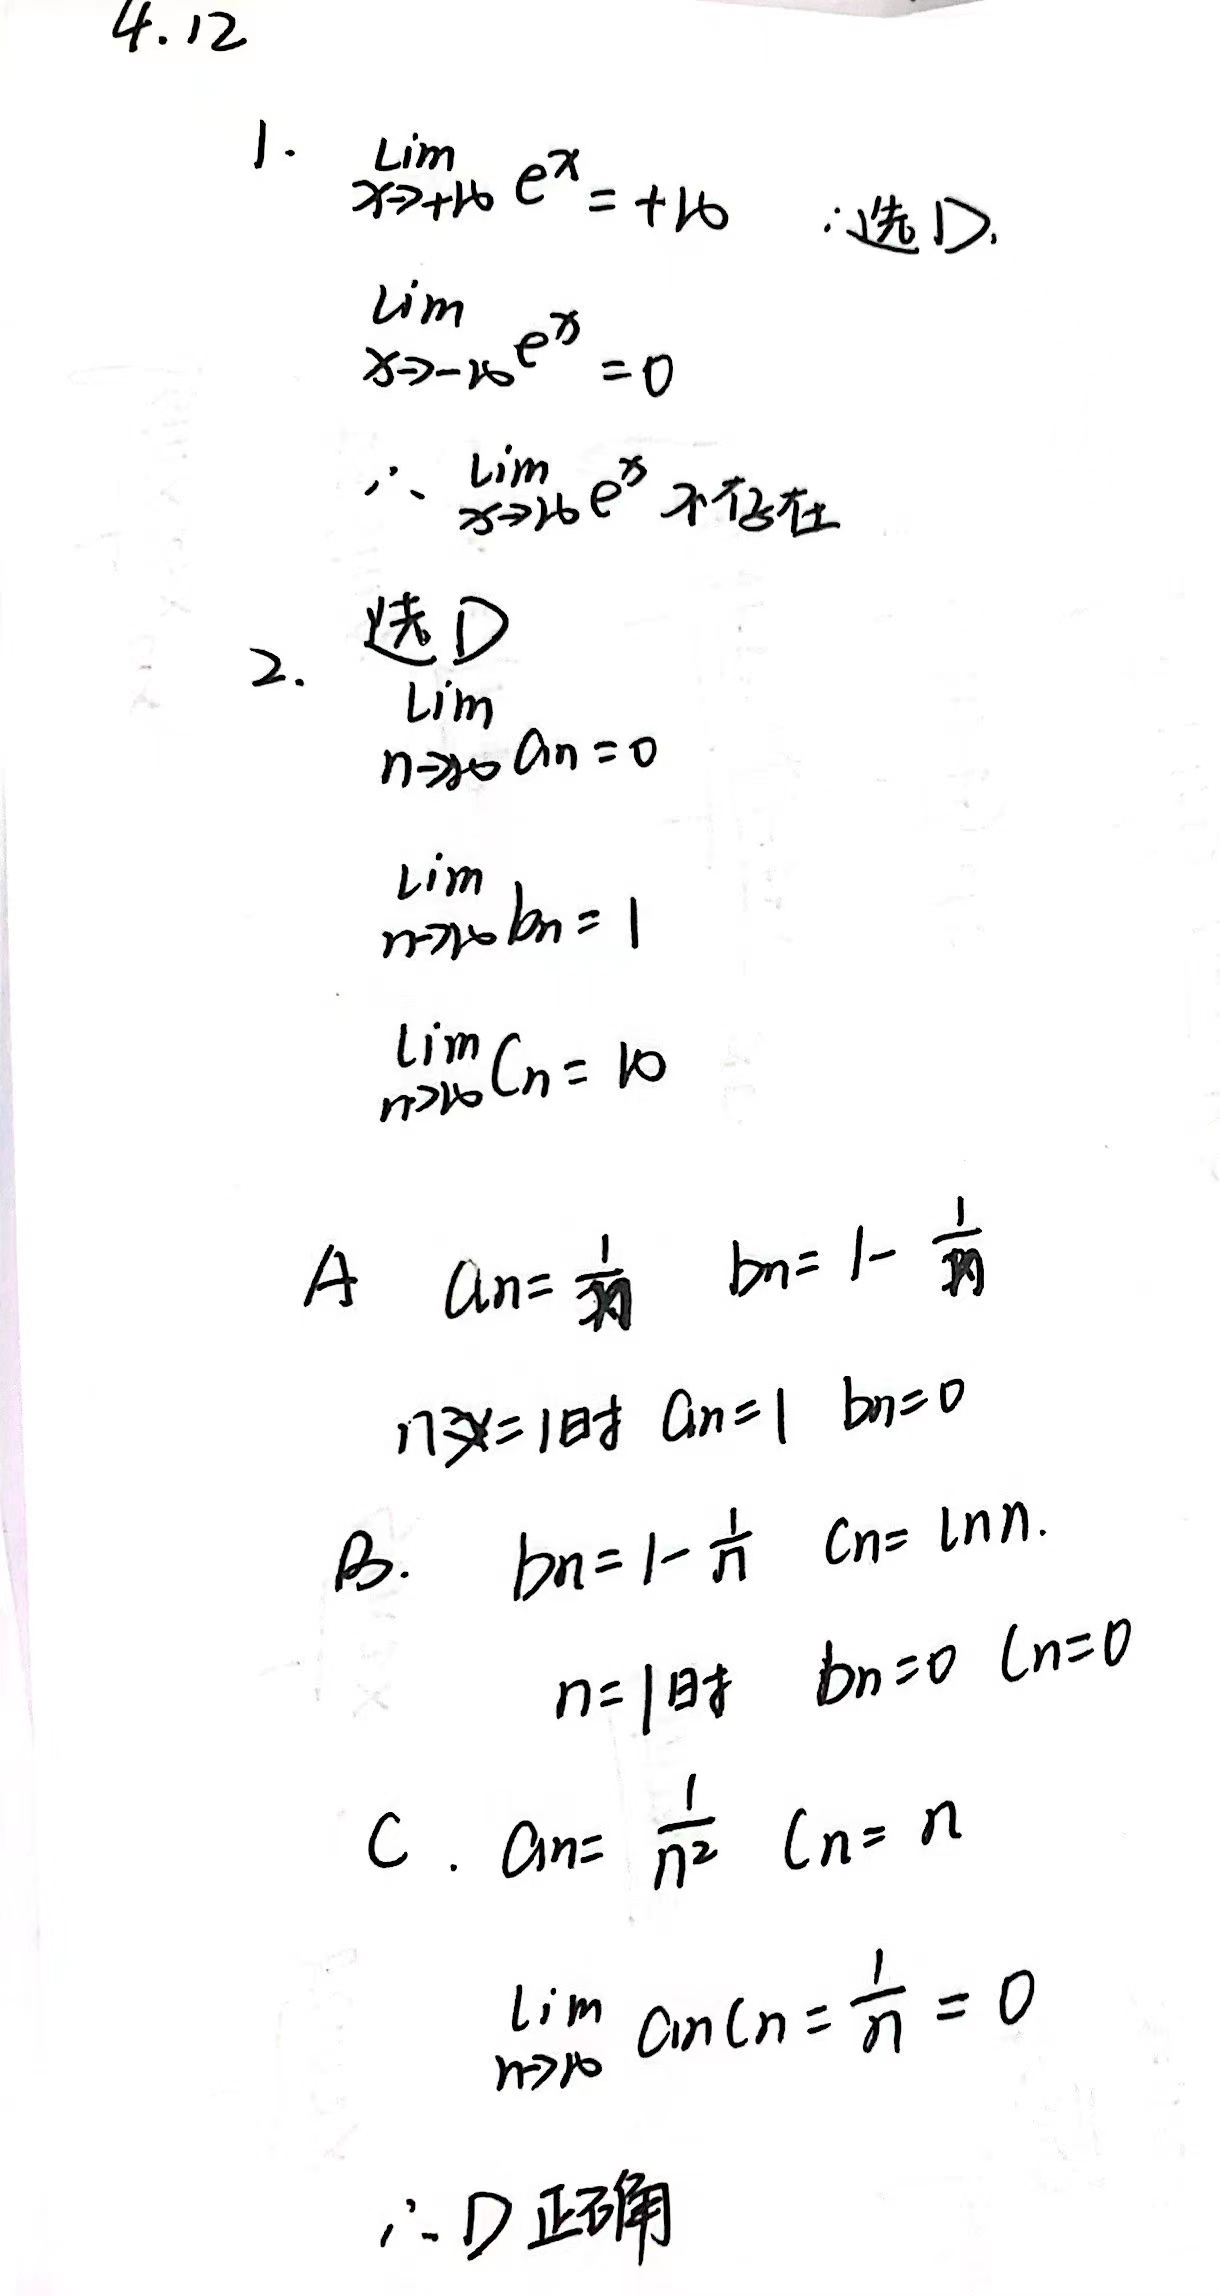 4.12
1. lim x→+∞ e^x = +∞ ∴选D.
lim x→-∞ e^x = 0
∴ lim x→∞ e^x 不存在
选D
2. lim n→∞ an = 0
lim n→∞ bn = 1
lim n→∞ Cn = ∞
A an = 1/n bn = 1 - 1/n
n = 1时 an = 1 bn = 0
B. bn = 1 - 1/n Cn = lnn.
n = 1时 bn = 0 Cn = 0
C. an = 1/n² Cn = n
lim n→∞ anCn = 1/n = 0
∴ D正确